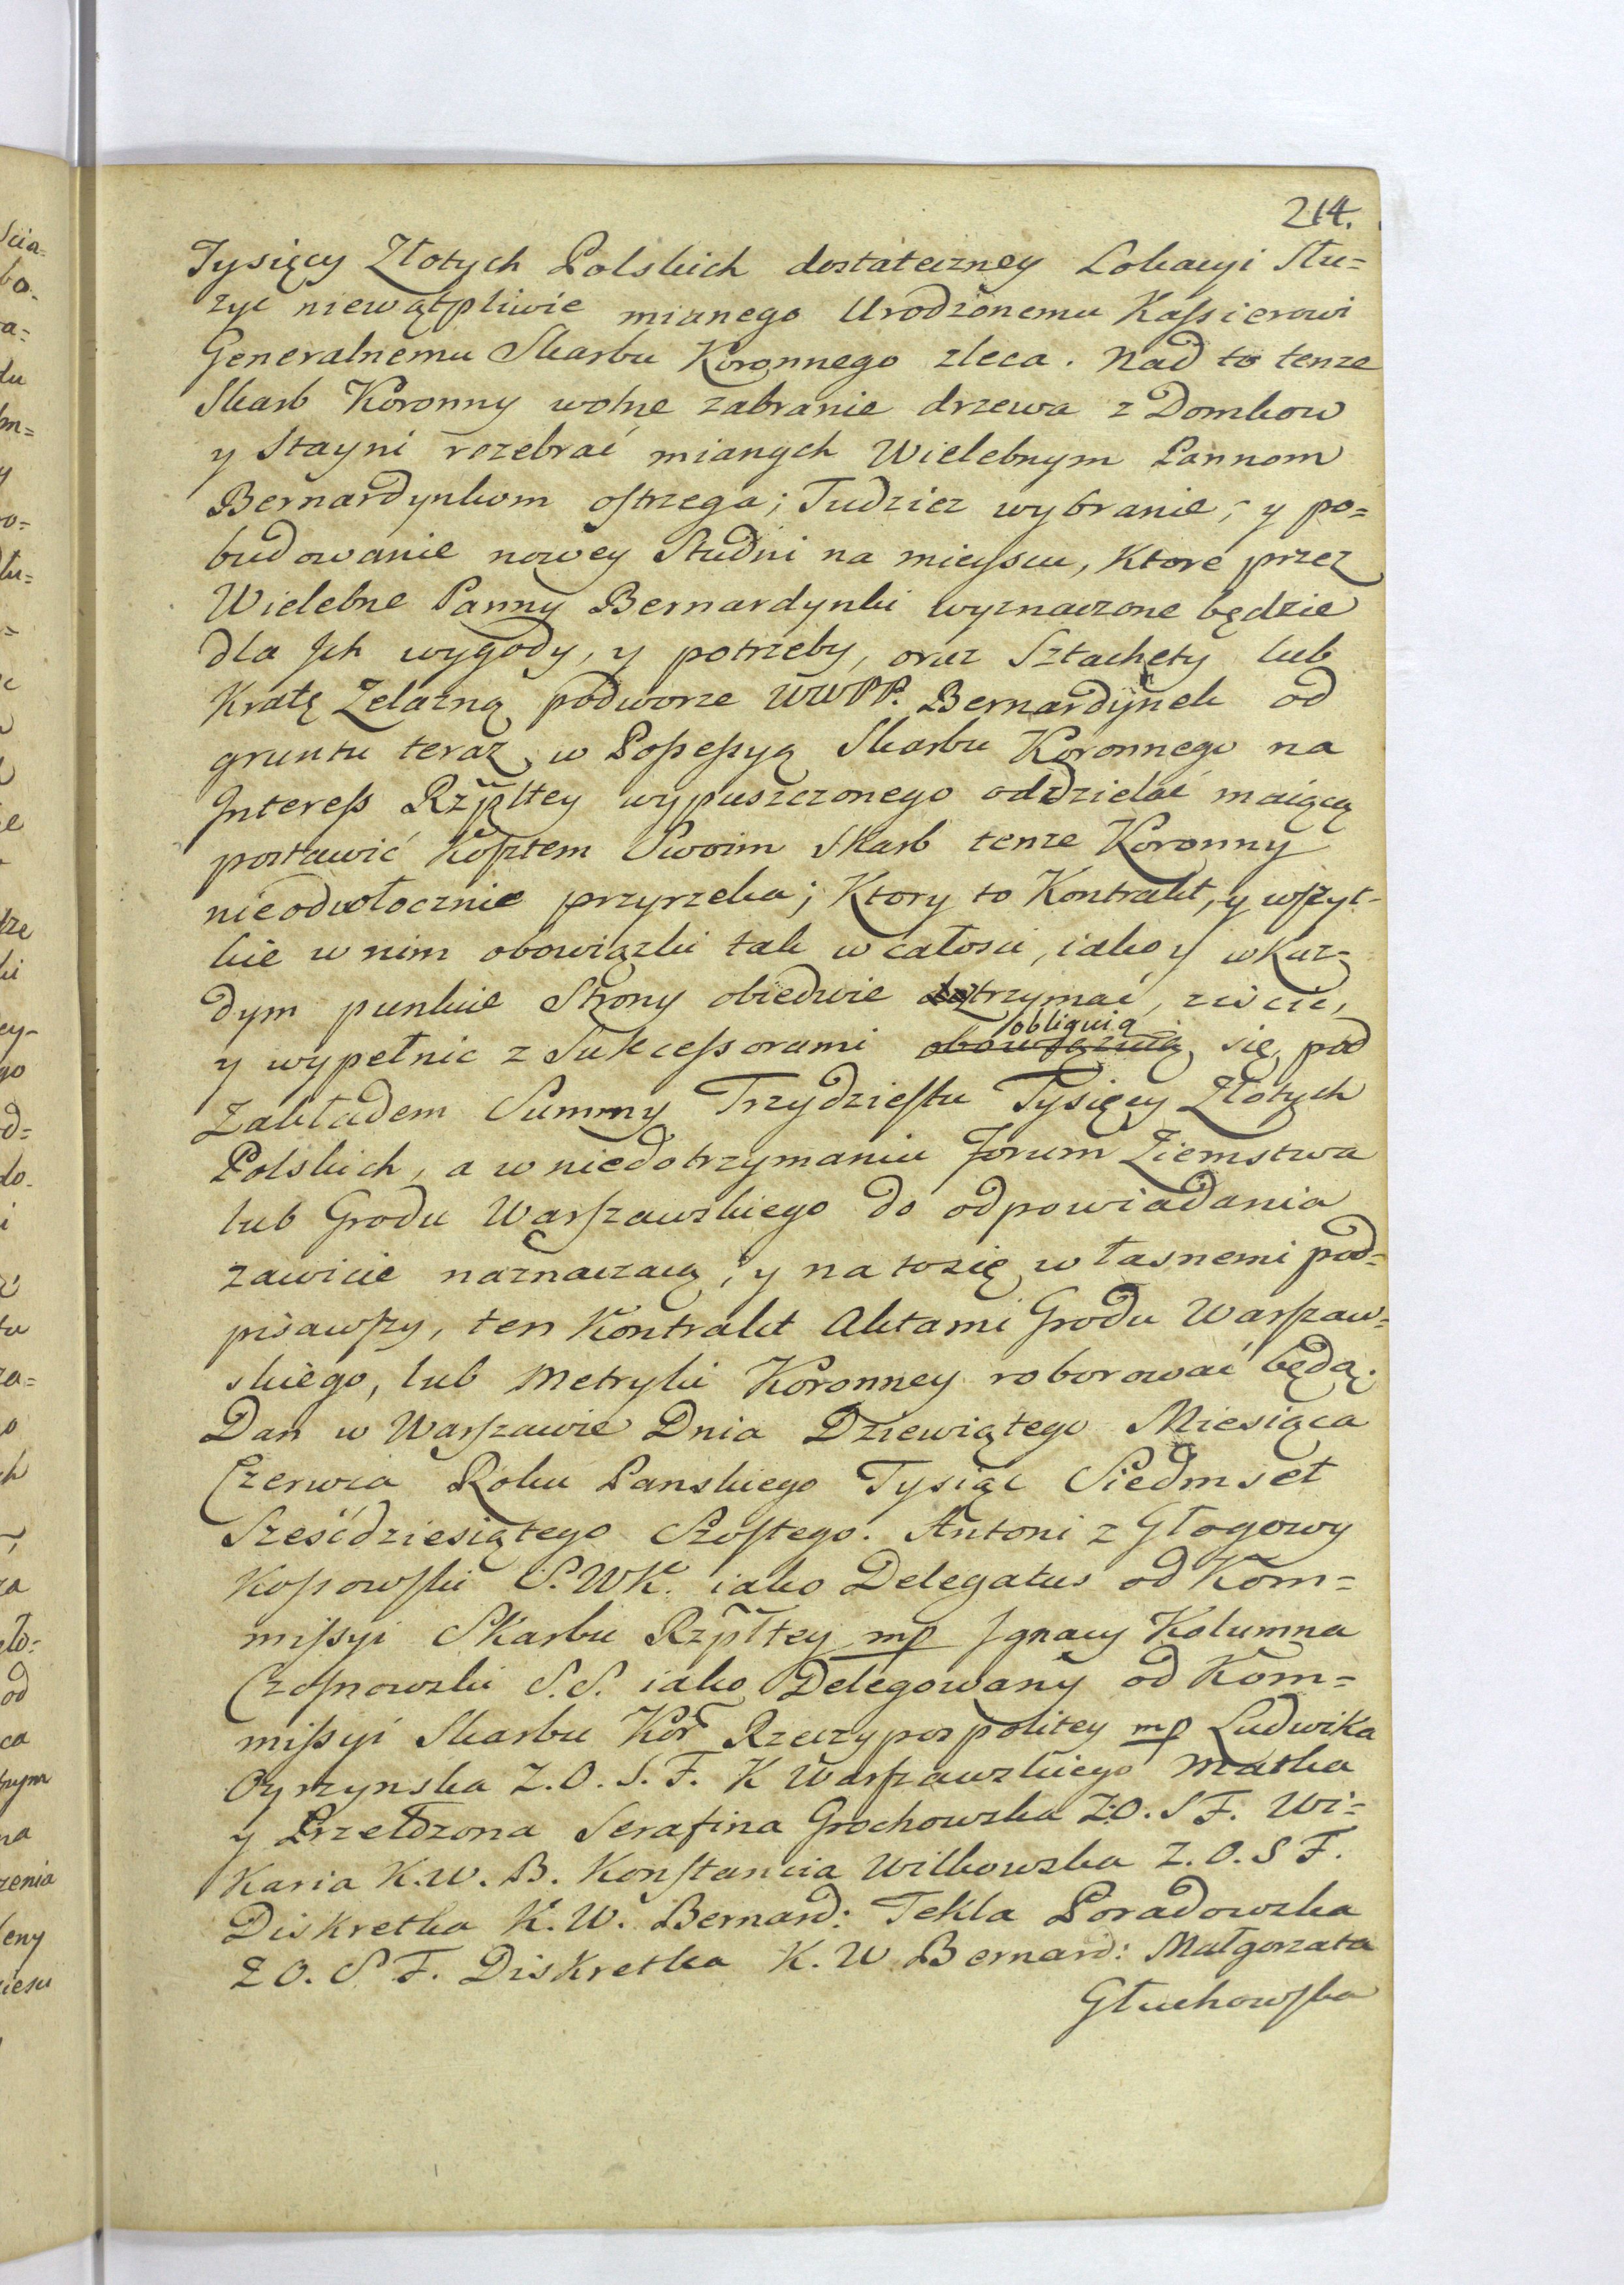 214.
Tysięcy Złotych Polskich dostateczney Lokacyi Słu=
zyc niewątpliwie mianego Urodzonemu Kassierowi
Generalnemu Skarbu Koronnego zleca. Nad to tenze
Skarb Koronny wolne zabranie drzewa z Domkow
y Stayni rozebrać mianych Wielebnym Pannom
Bernardynkom ostrzega; Tudziez wybranie, y po=
budowanie nowey Studni na mieyscu, Ktore przez
Wielebne Panny Bernardynki wyznaczone będzie
dla Jch wygody, y potrzeby, oraz Sztachety lub
Kratę Zelazną podworze WWPP. Bernardynek od
gruntu teraz w Possessyą Skarbu Koronnego na
Interess Rzpltey wypuszczonego oddzielać maiącą
postawić Kosztem Swoim Skarb tenze Koronny
nieodwłocznie przyrzeka; Ktory to Kontrakt, y wszyt-
kie w nim obowiązki tak w całosci, iako y w Kaz=
dym punkcie Strony obiedwie dotrzymać, ziścić,
y wypełnic z Sukcessorami obowiązuią obliguią się, pod
Zakładem Summy Trzydziestu Tysięcy Złotych
Polskich, a w niedotrzymaniu Forum Ziemstwa
lub Grodu Warszawskiego do odpowiadania
zawicie naznaczaią, y na to się własnemi pod=
pisawszy, ten Kontrakt Aktami Grodu Warszaw=
skiego, lub Metryki Koronney roborować będą.
Dan w Warszawie Dnia Dziewiątego Miesiąca
Czerwca Roku Panskiego Tysiąc Siedmset
Sześćdziesiątego Szostego. Antoni z Głogowy
Kossowski S.WK. iako Delegatus od Kom=
missyi Skarbu Rzpltey mp Jgnacy Kolumna
Czosnowski S.S. iako Delegowany od Kom=
missyi Skarbu Kor Rzeczypospolitey mp Ludwika
Ozyrzynska Z.O.S.F. K Warszawskiego Matka
y Przełozona Serafina Grochowska Z.O.S F. Wi=
Karia K.W.B. Konstancia Wilkowska Z.O.S F.
Diskretka K.W. Bernard: Tekla Poradowska
Z O. S F. Diskretka K.W Bernard: Małgorzata
Głuchowska